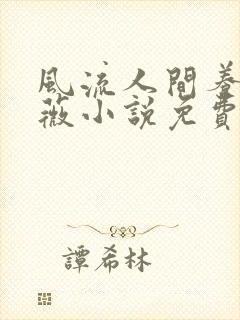 風流人間養
薇小說免費
譚希林